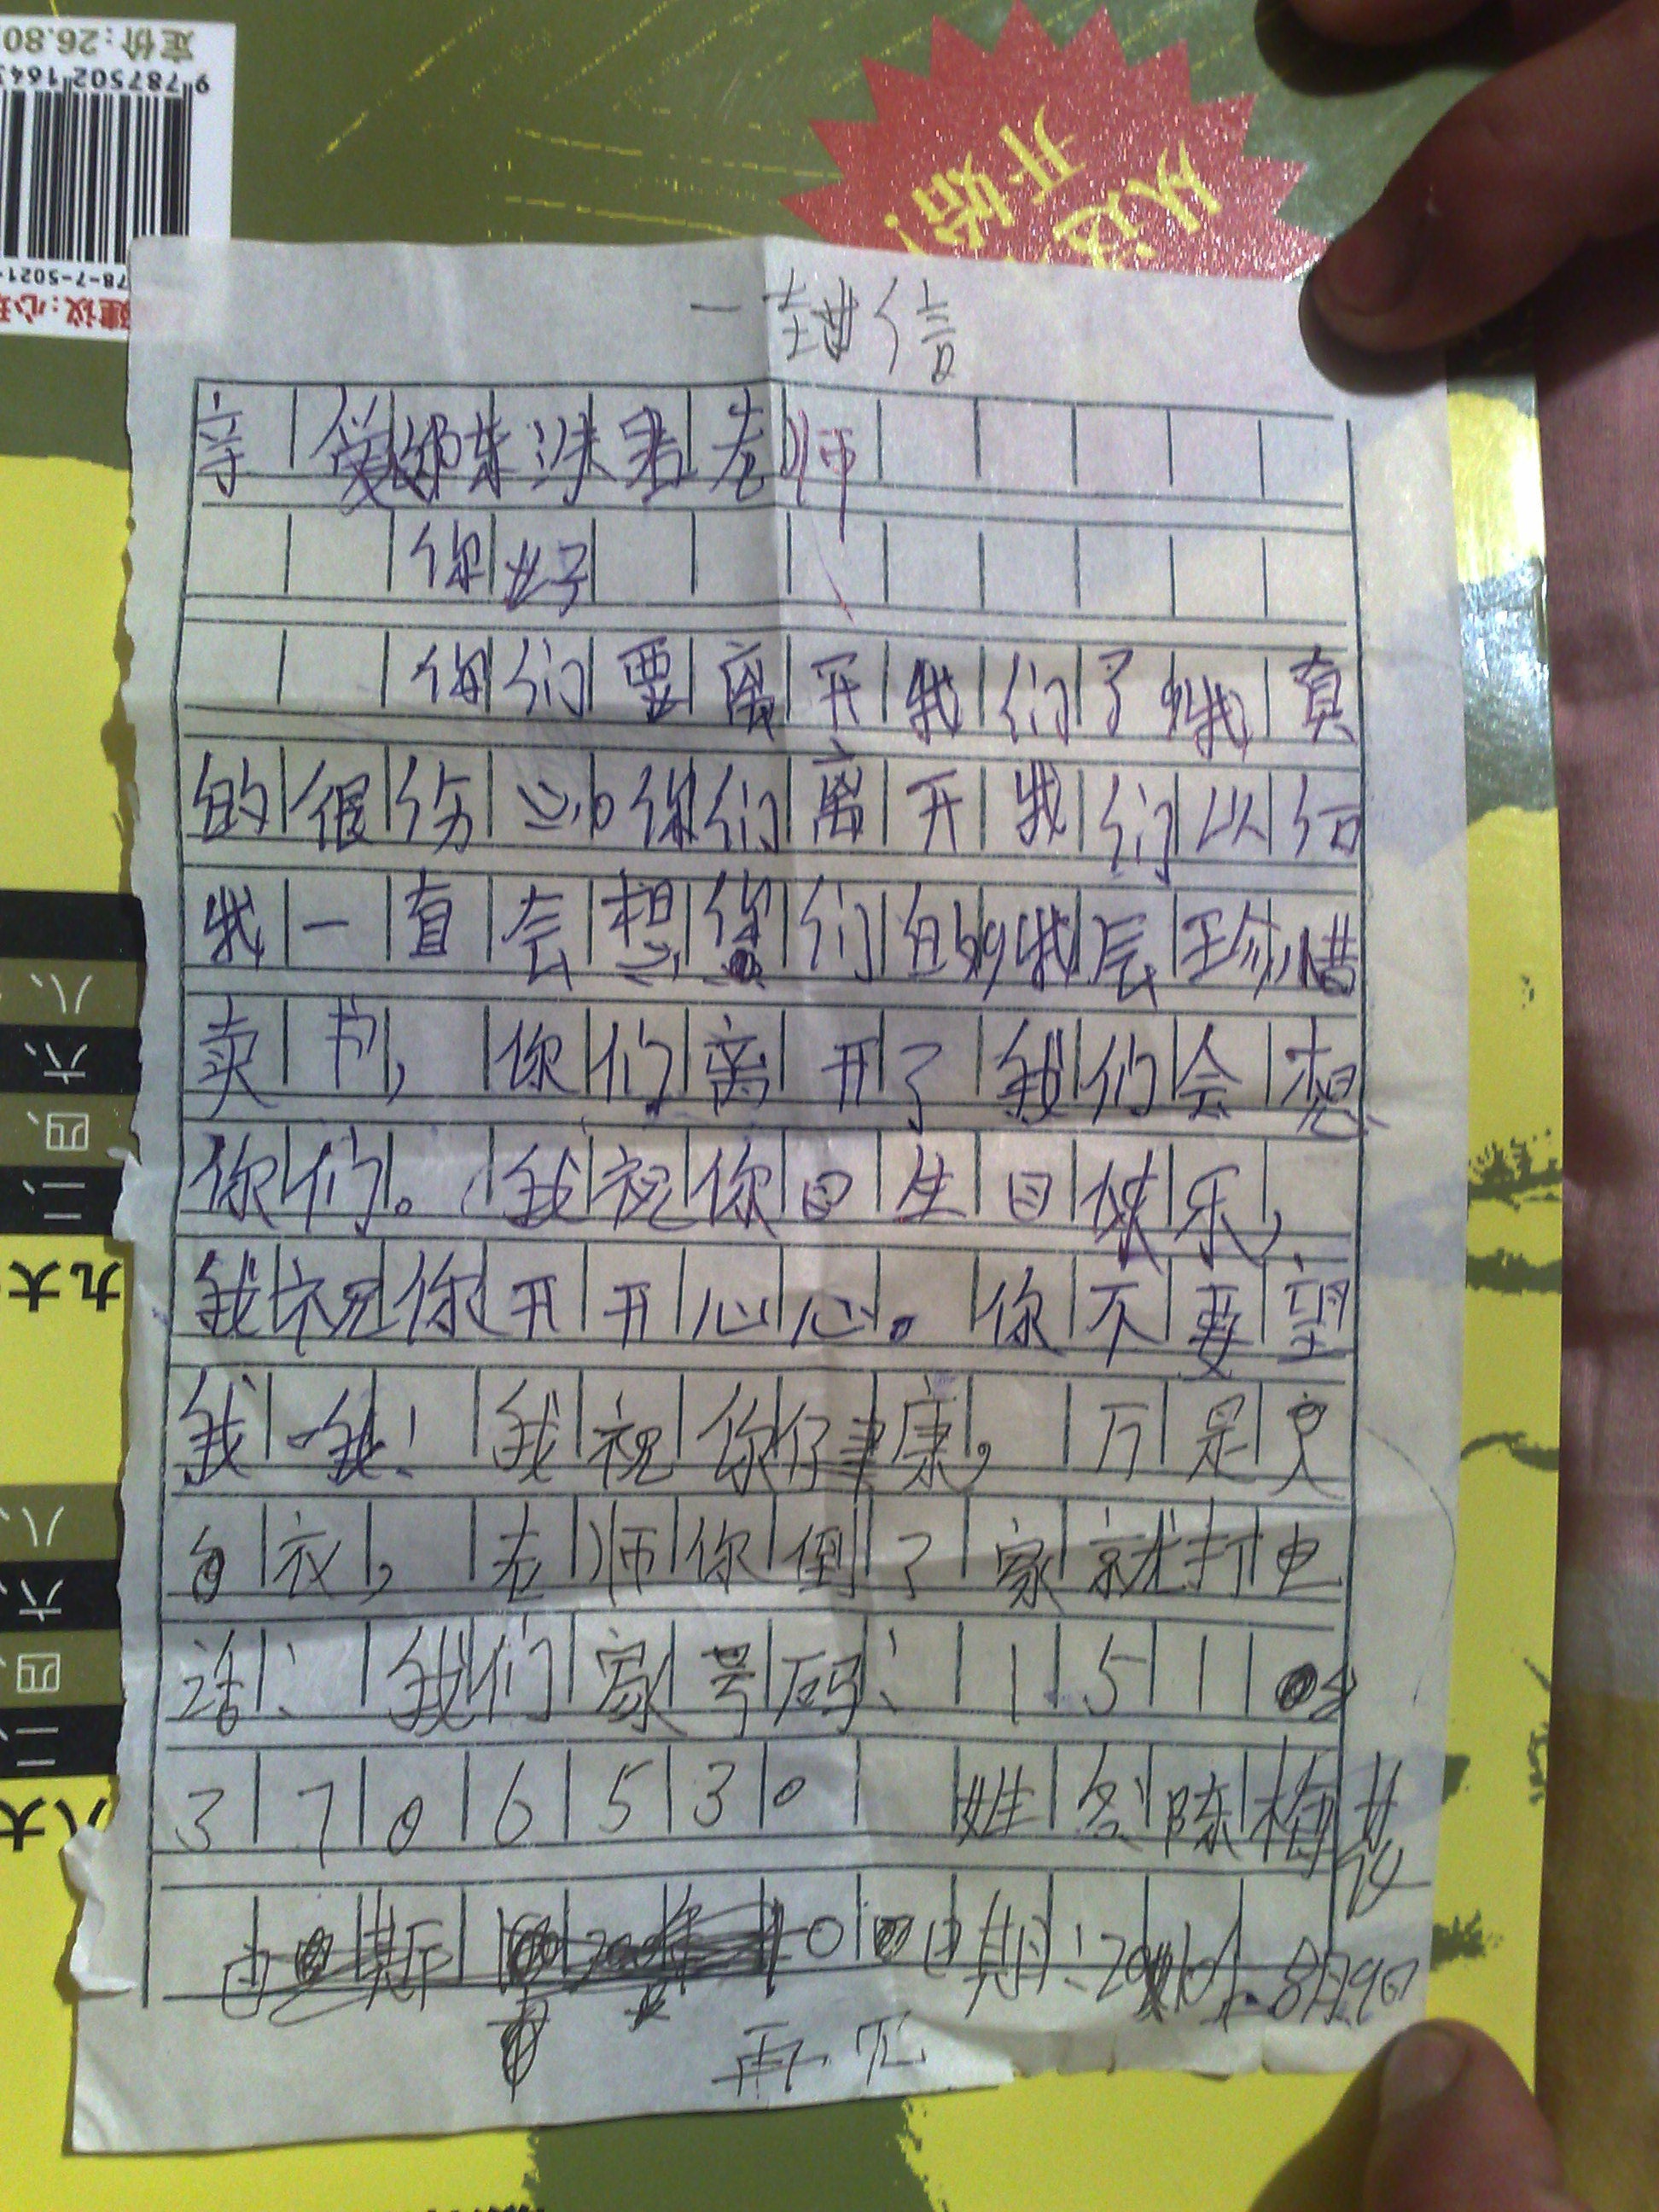 定价:26.80
9 787502 164
78-7-5021-
建议:心
从这
开始!
一封信
亲爱的朱洪君老师
你好
你们要离开我们了我真
的很伤心你们离开我们以后
我一直会想你们的我会珍惜
卖书,你们离开了我们会想
你们。我祝你生日快乐,
我祝你开开心心。你不要望
我哦!我祝你健康,万是
衣,老师你倒了家就打电
话:我们家号码:151
3706530 姓名陈梅
日期:20 8月9日
再见
八、
六、
四、
二、
九大
八、
六、
四、
二、
八大